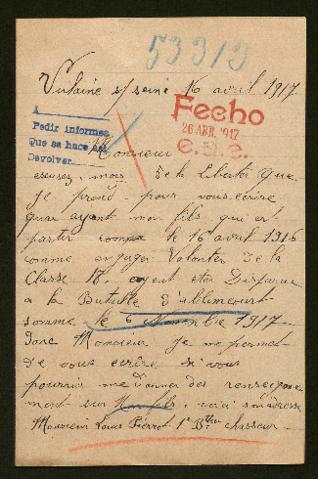 53313
Vulaine s/ seine 16 avril 1917
Fecho
26 ABR. 1917
C.S.C.
A
Pedir informes
Que se hace así
Devolver
Monsieur
escusez, mois de la liberter que
Je prend pour vous écrire
quar ayant mon fils qui est
partir comme le 16 avril 1916
comme engager Volonter de la
Classe 18. ayent etes Disparue
a la Butaille d'ablincourt
somme le 6 Novembre 1917
Donc Monsieur Je me permet
de vous écrire si vous
pourrier me donner des renseigne
ment sur Mon fils, voici son adresse
Monsieur Louis Pierrot 1er Bton chasseur